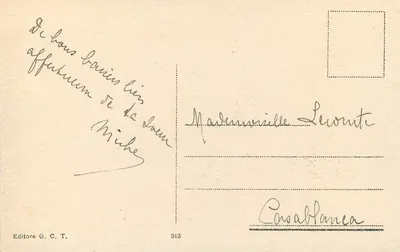 De bons baisers bien
affectueux de ta soeur
Miche
Mademoiselle Lecomte
Casablanca
Editore G. C. T.
943